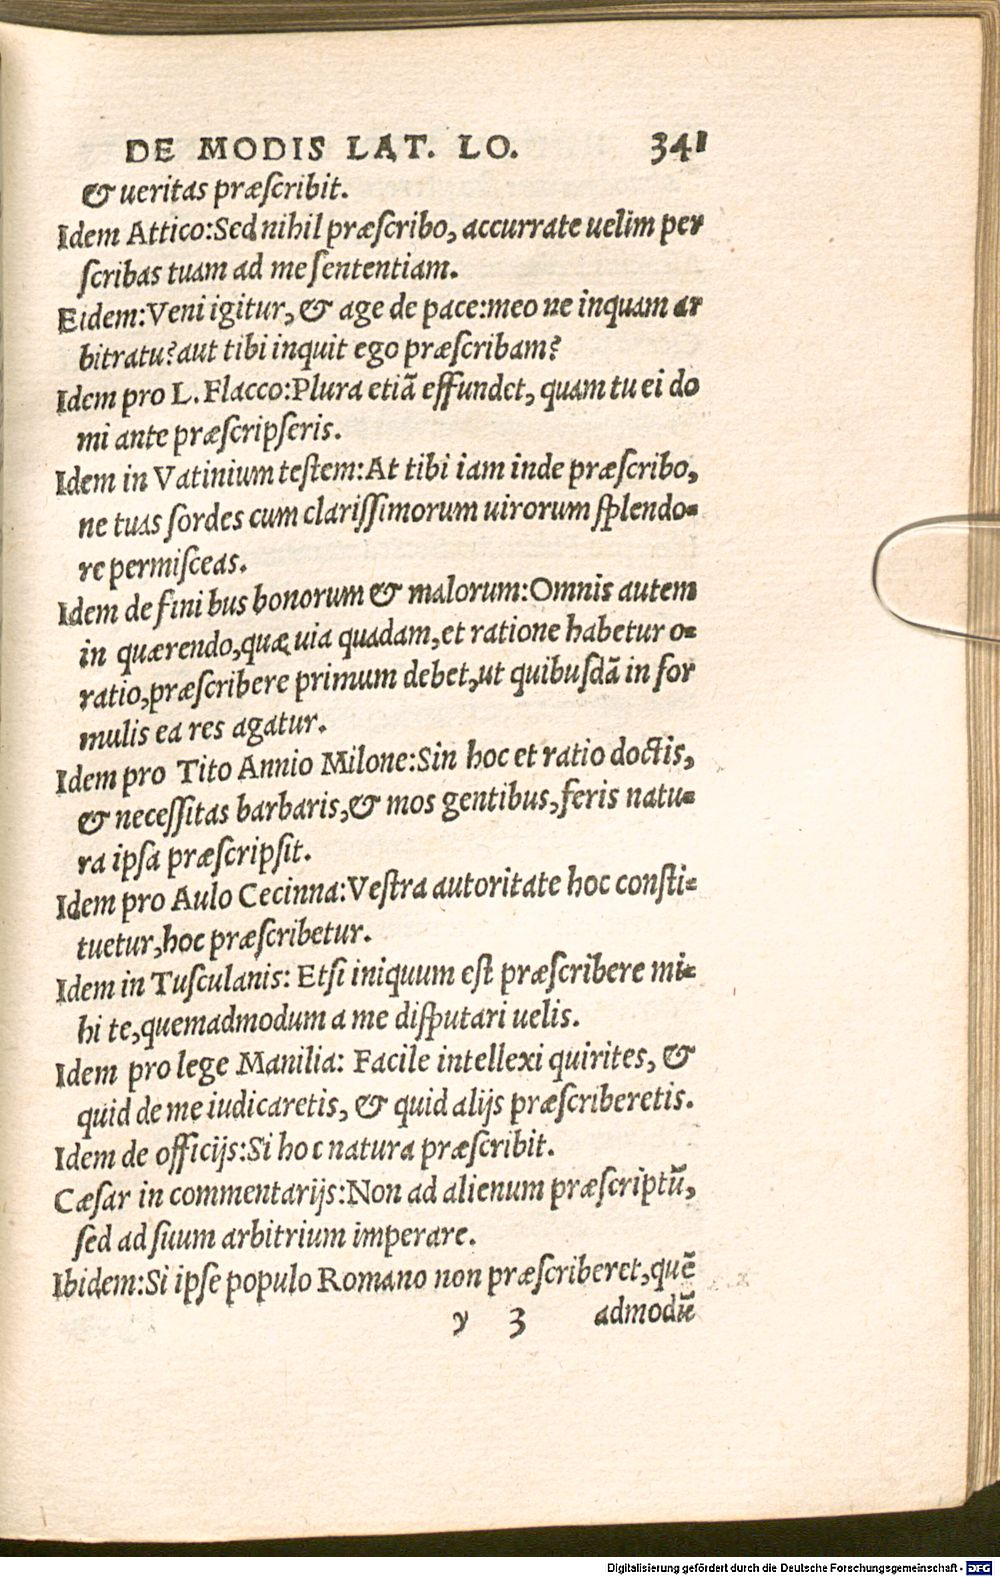 DE MODIS LAT. LO. 341
& ueritas præſcribit.
Idem Attico:Sed nihil præſcribo, accurrate uelim per
ſcribas tuam ad me ſententiam.
Eidem:Veni igitur, & age de pace:meo ne inquam ar
bitratu?aut tibi inquit ego præſcribam?
Idem pro L. Flacco:Plura etiã effundet, quam tu ei do
mi ante præſcripſeris.
Idem in Vatinium teſtem:At tibi iam inde præſcribo,
ne tuas ſordes cum clariſſimorum uirorum ſplendo=
re permiſceas.
Idem de finibus bonorum & malorum:Omnis autem
in quærendo,quæ uia quadam,et ratione habetur o=
ratio,præſcribere primum debet,ut quibuſdã in for
mulis ea res agatur.
Idem pro Tito Annio Milone:Sin hoc et ratio doctis,
& neceſſitas barbaris,& mos gentibus,feris natu=
ra ipſa præſcripſit.
Idem pro Aulo Cecinna:Veſtra autoritate hoc conſti=
tuetur,hoc præſcribetur.
Idem in Tuſculanis: Etſi iniquum eſt præſcribere mi=
hi te,quemadmodum a me diſputari uelis.
Idem pro lege Manilia: Facile intellexi quirites, &
quid de me iudicaretis, & quid alijs præſcriberetis.
Idem de officijs:Si hoc natura præſcribit.
Cæſar in commentarijs:Non ad alienum præſcriptũ,
ſed ad ſuum arbitrium imperare.
Ibidem:Si ipſe populo Romano non præſcriberet,quẽ
y 3 admodũ
Digitalisierung gefördert durch die Deutsche Forschungsgemeinschaft - DFG